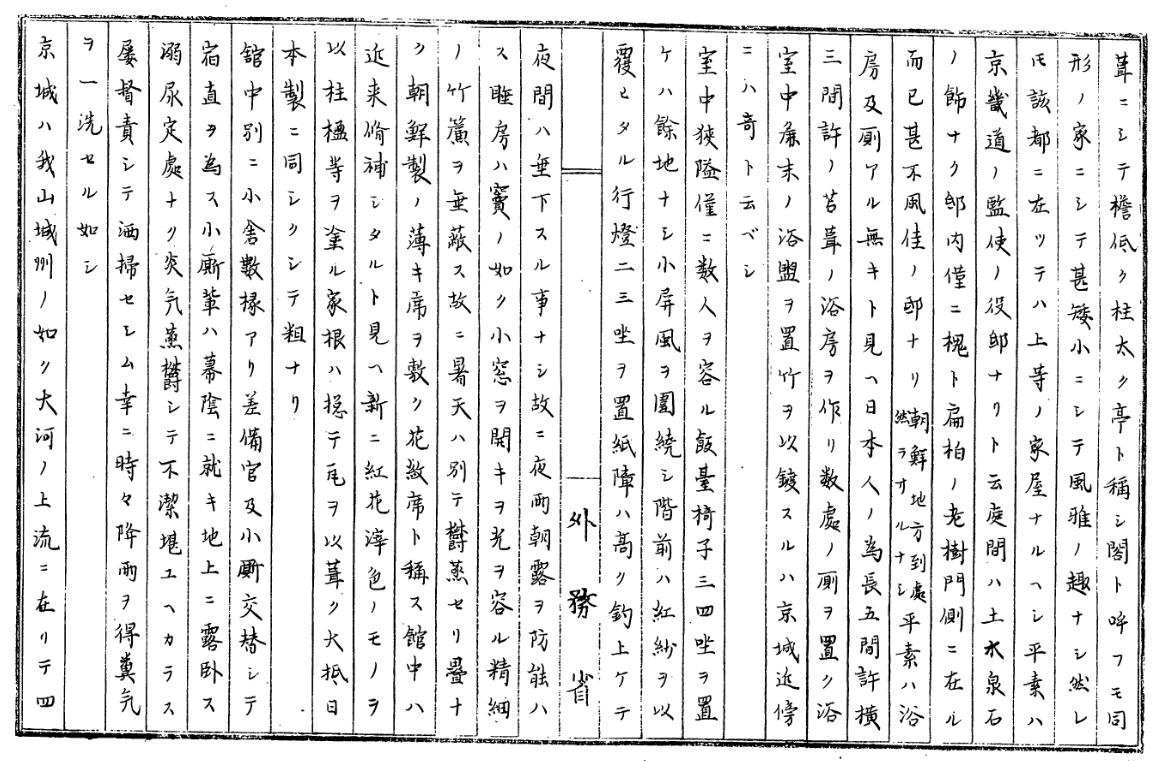 葺ニシテ檐低ク柱太ク亭ト稱シ閣ト呼フモ同
形ノ家ニシテ甚矮小ニシテ風雅ノ趣ナシ然レ
𪜈該都ニ在ツテハ上等ノ家屋ナルヘシ平素ハ
京畿道ノ監使ノ役邸ナリト云庭間ハ土水泉石
ノ飾ナク邸内僅ニ槐ト扁柏ノ老樹門側ニ在ル
而已甚不風佳ノ邸ナリ朝鮮地方到處然ラサルナシ平素ハ浴
房及厠アル無キト見ヘ日本人ノ為長五間許横
三間許ノ苫葺ノ浴房ヲ作リ数處ノ厠ヲ置ク浴
室中麁末ノ浴盥ヲ置竹ヲ以鍍スルハ京城近傍
ニハ奇ト云ベシ
室中狹隘僅ニ数人ヲ容ル飯臺椅子三四坐ヲ置
ケハ餘地ナシ小屏風ヲ圍繞シ階前ハ紅紗ヲ以
覆ヒタル行燈二三坐ヲ置紙障ハ高ク釣上ケテ
外務省
夜間ハ垂下スル事ナシ故ニ夜雨朝露ヲ防能ハ
ス睡房ハ竇ノ如ク小窓ヲ開キヲ光ヲ容ル精細
ノ竹簾ヲ垂蔽ス故ニ暑天ハ別テ欝蒸セリ疊ナ
ク朝鮮製ノ薄キ席ヲ敷ク花紋席ト稱ス館中ハ
近来脩補シタルト見ヘ新ニ紅花滓色ノモノヲ
以柱楹等ヲ塗ル家根ハ搃テ瓦ヲ以葺ク大抵日
本製ニ同シクシテ粗ナリ
舘中別ニ小舎數椽アリ差備官及小厮交替シテ
宿直ヲ為ス小厮輩ハ幕陰ニ就キ地上ニ露卧ス
溺尿定處ナク炎气蒸欝シテ不潔堪ユヘカラス
屡督責シテ洒掃セシム幸ニ時々降雨ヲ得糞气
ヲ一洗セル如シ
京城ハ我山城州ノ如ク大河ノ上流ニ在リテ四